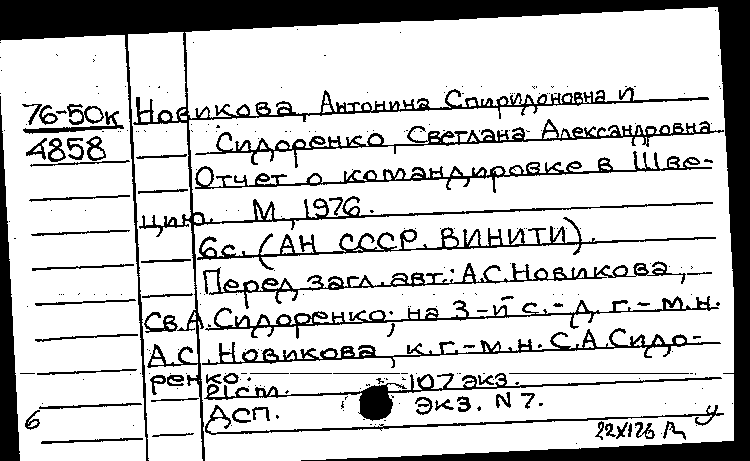 76-50к Новикова, Антонина Спиридоновна и
4858 Сидоренко, Светлана Александровна
Отчет о командировке в Шве-
цию. М., 1976.
6с. (АН СССР. ВИНИТИ).
Перед загл. авт.: А.С. Новикова,
Св.А. Сидоренко; на 3-й с.- д. г.-м.н.
А.С. Новикова, к.г.-м.н. С.А. Сидо-
ренко.
21 см. 107 экз.
ДСП. экз. N 7.
6
22X176